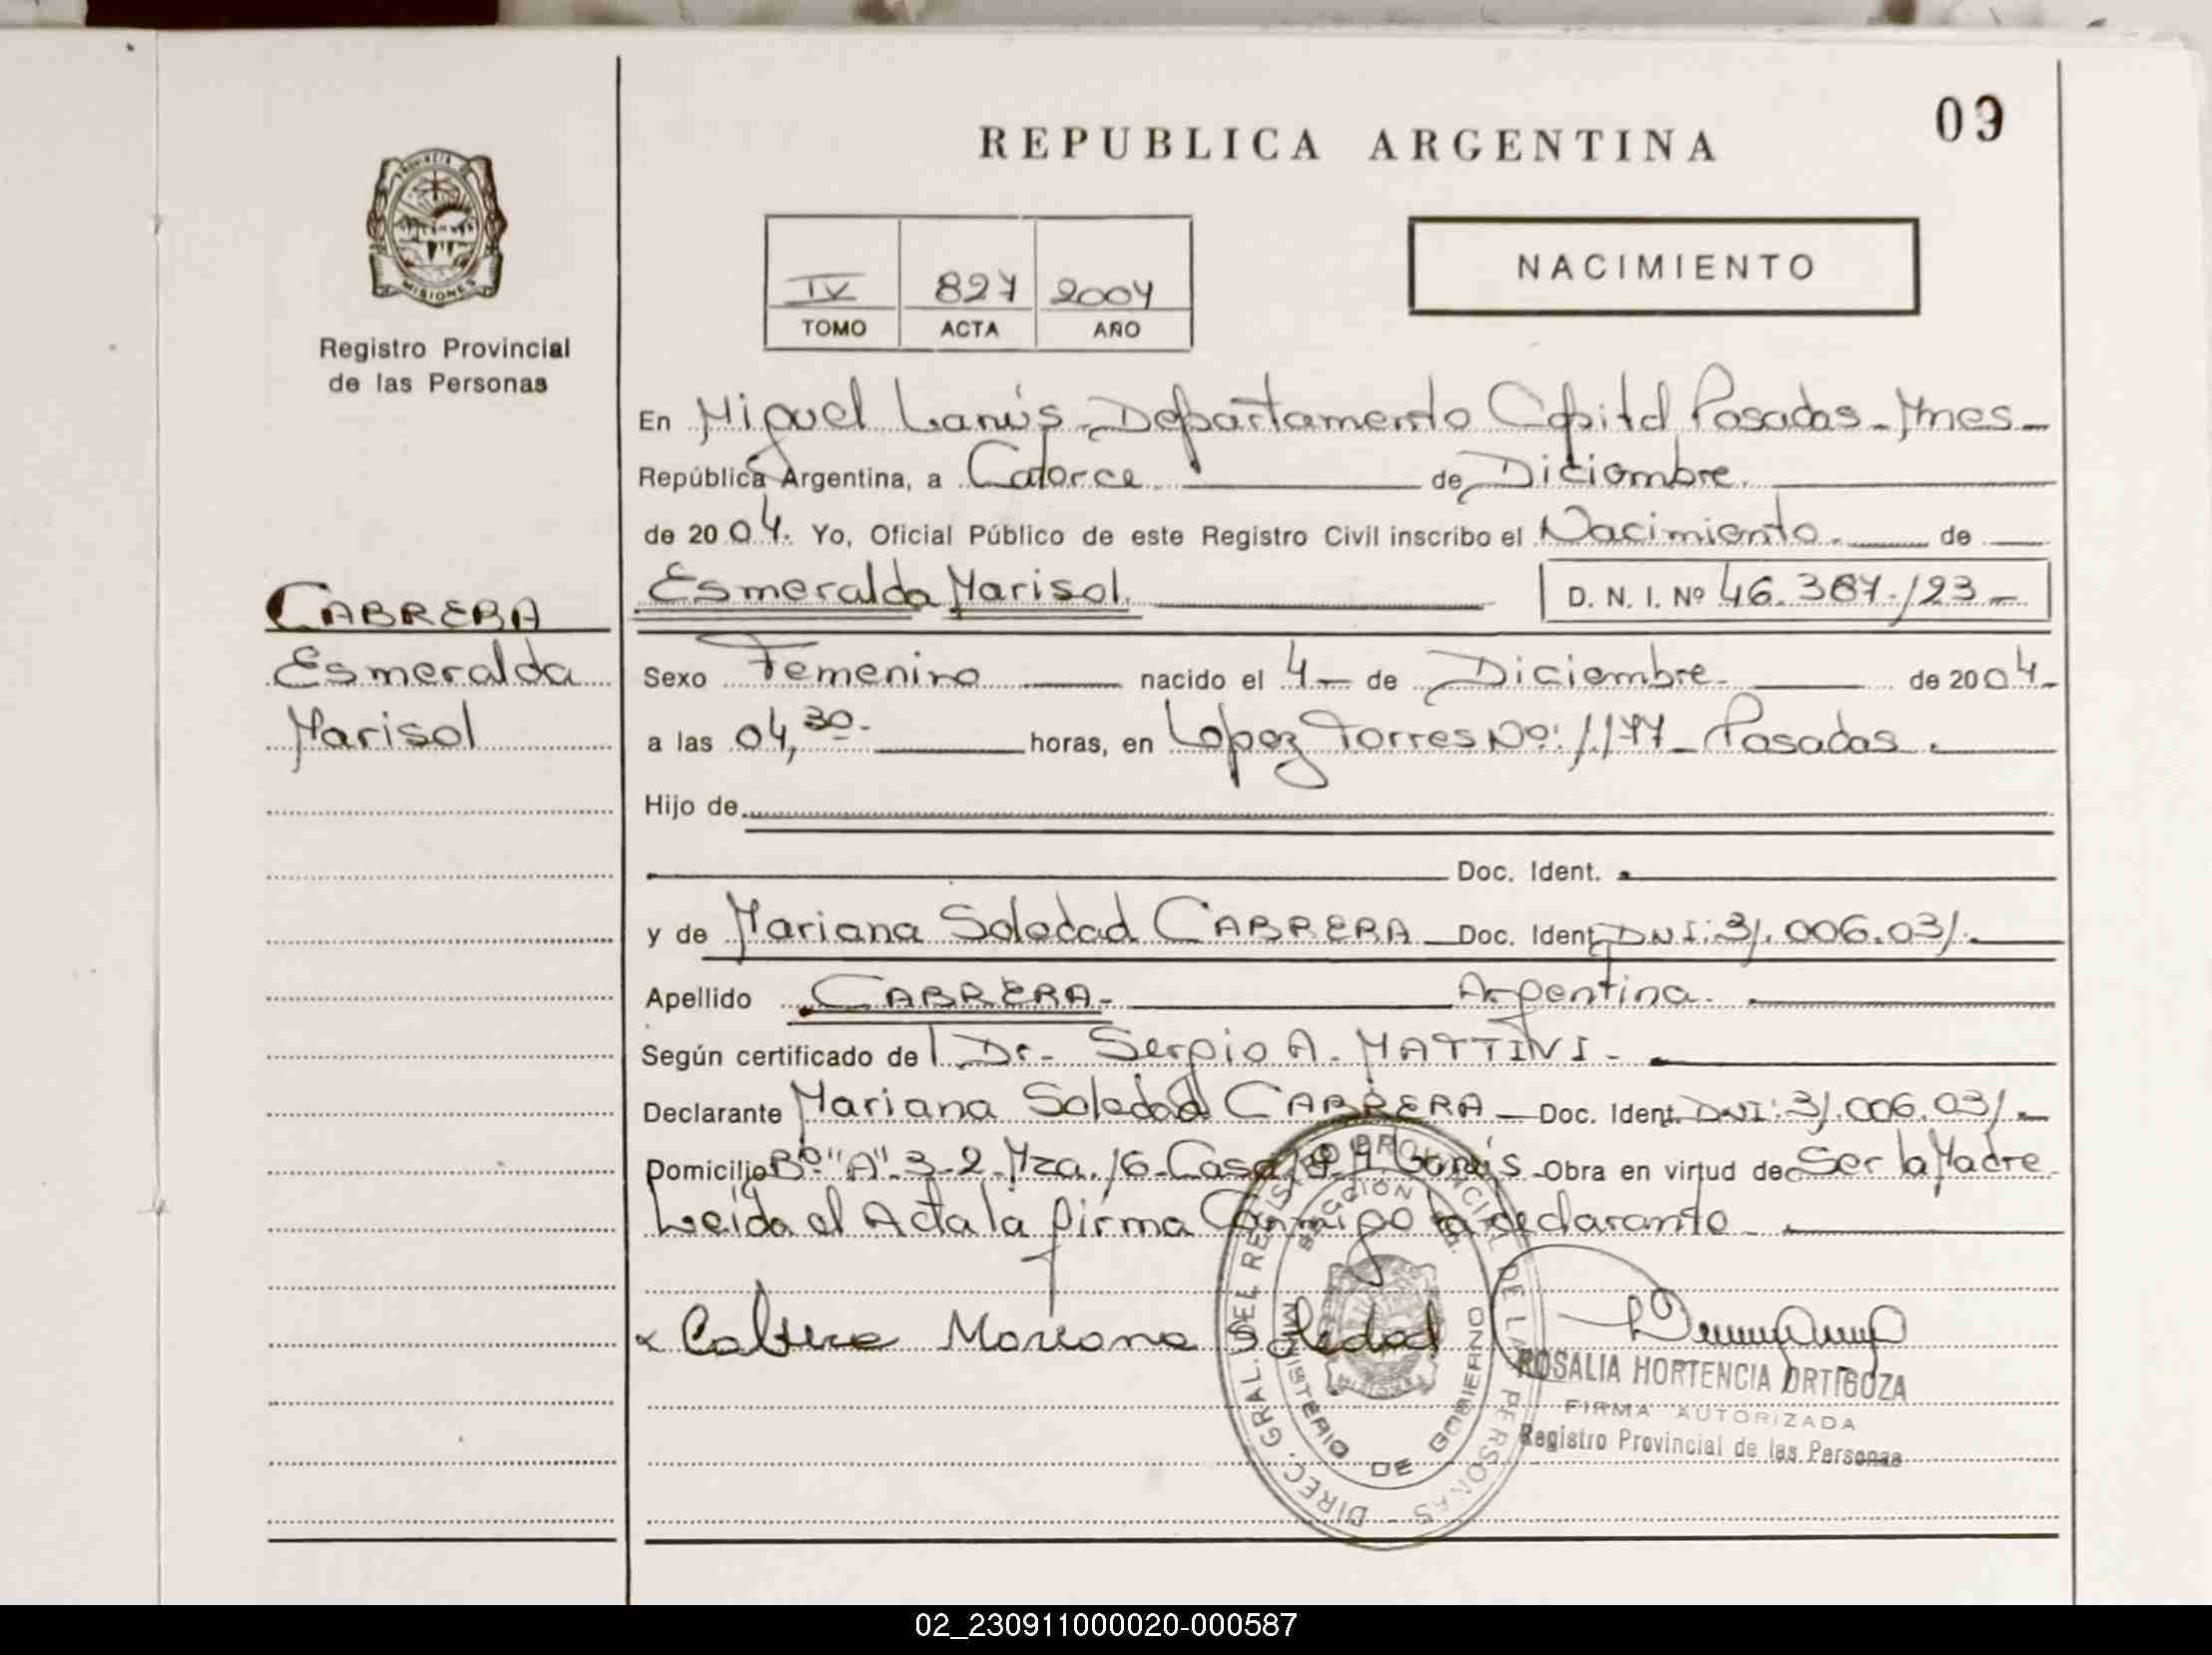 REPUBLICA ARGENTINA
09
PROVINCIA DE
MISIONES
Registro Provincial
de las Personas
IV 827 2004
TOMO ACTA AÑO
NACIMIENTO
En Miguel Lanús - Departamento Capital Posadas - Mnes -
República Argentina, a Catorce de Diciembre.
de 2004. Yo, Oficial Público de este Registro Civil inscribo el Nacimiento. de
Esmeralda Marisol. D. N. I. Nº 46.387.123 -
CABRERA
Esmeralda
Marisol
Sexo Femenino nacido el 4 - de Diciembre - de 2004 -
a las 04,30 - horas, en Lopez Torres Nº: 1177 - Posadas.
Hijo de
Doc. Ident.
y de Mariana Soledad CABRERA - Doc. Ident. DNI: 31.006.031. -
Apellido CABRERA - Argentina.
Según certificado de Dr. Sergio A. MATTIVI -
Declarante Mariana Soledad CABRERA - Doc. Ident. DNI: 31.006.031 -
Domicilio Bº "A" 3-2 - Mza. 16 - Casa Lanús - Obra en virtud de Ser la Madre -
Leida el Acta la firma Conmigo la declarante -
x Cabrera Mariana Soledad
DIREC. GRAL. DEL REGISTRO PROVINCIAL DE LAS PERSONAS
SECCIÓN
MINISTERIO DE GOBIERNO
ROSALIA HORTENCIA ORTIGOZA
FIRMA AUTORIZADA
Registro Provincial de las Personas
02_230911000020-000587